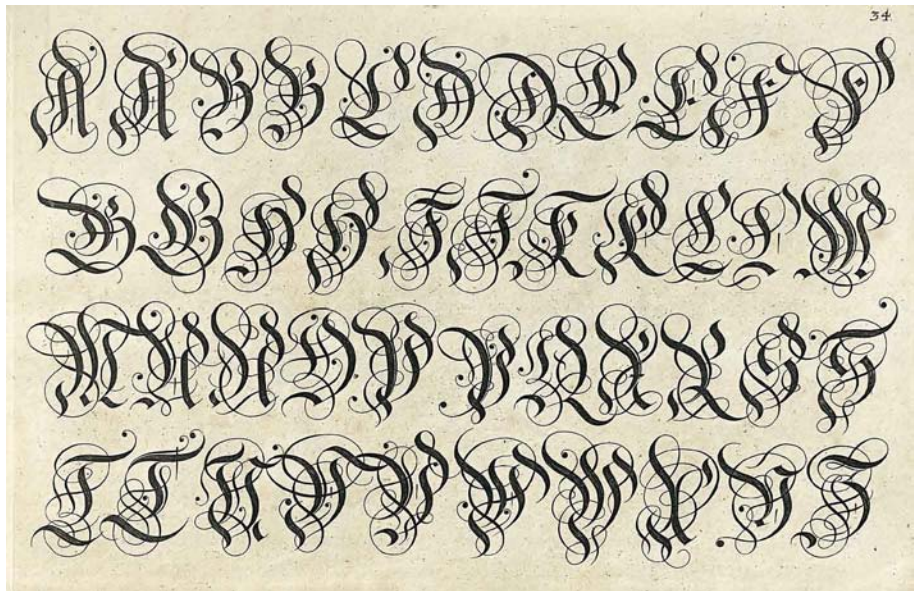 34.
A A B B C D D E E F F
G G H H I I K K L L M
M N N O P P Q R R S S
T T U V V W W X Y Z